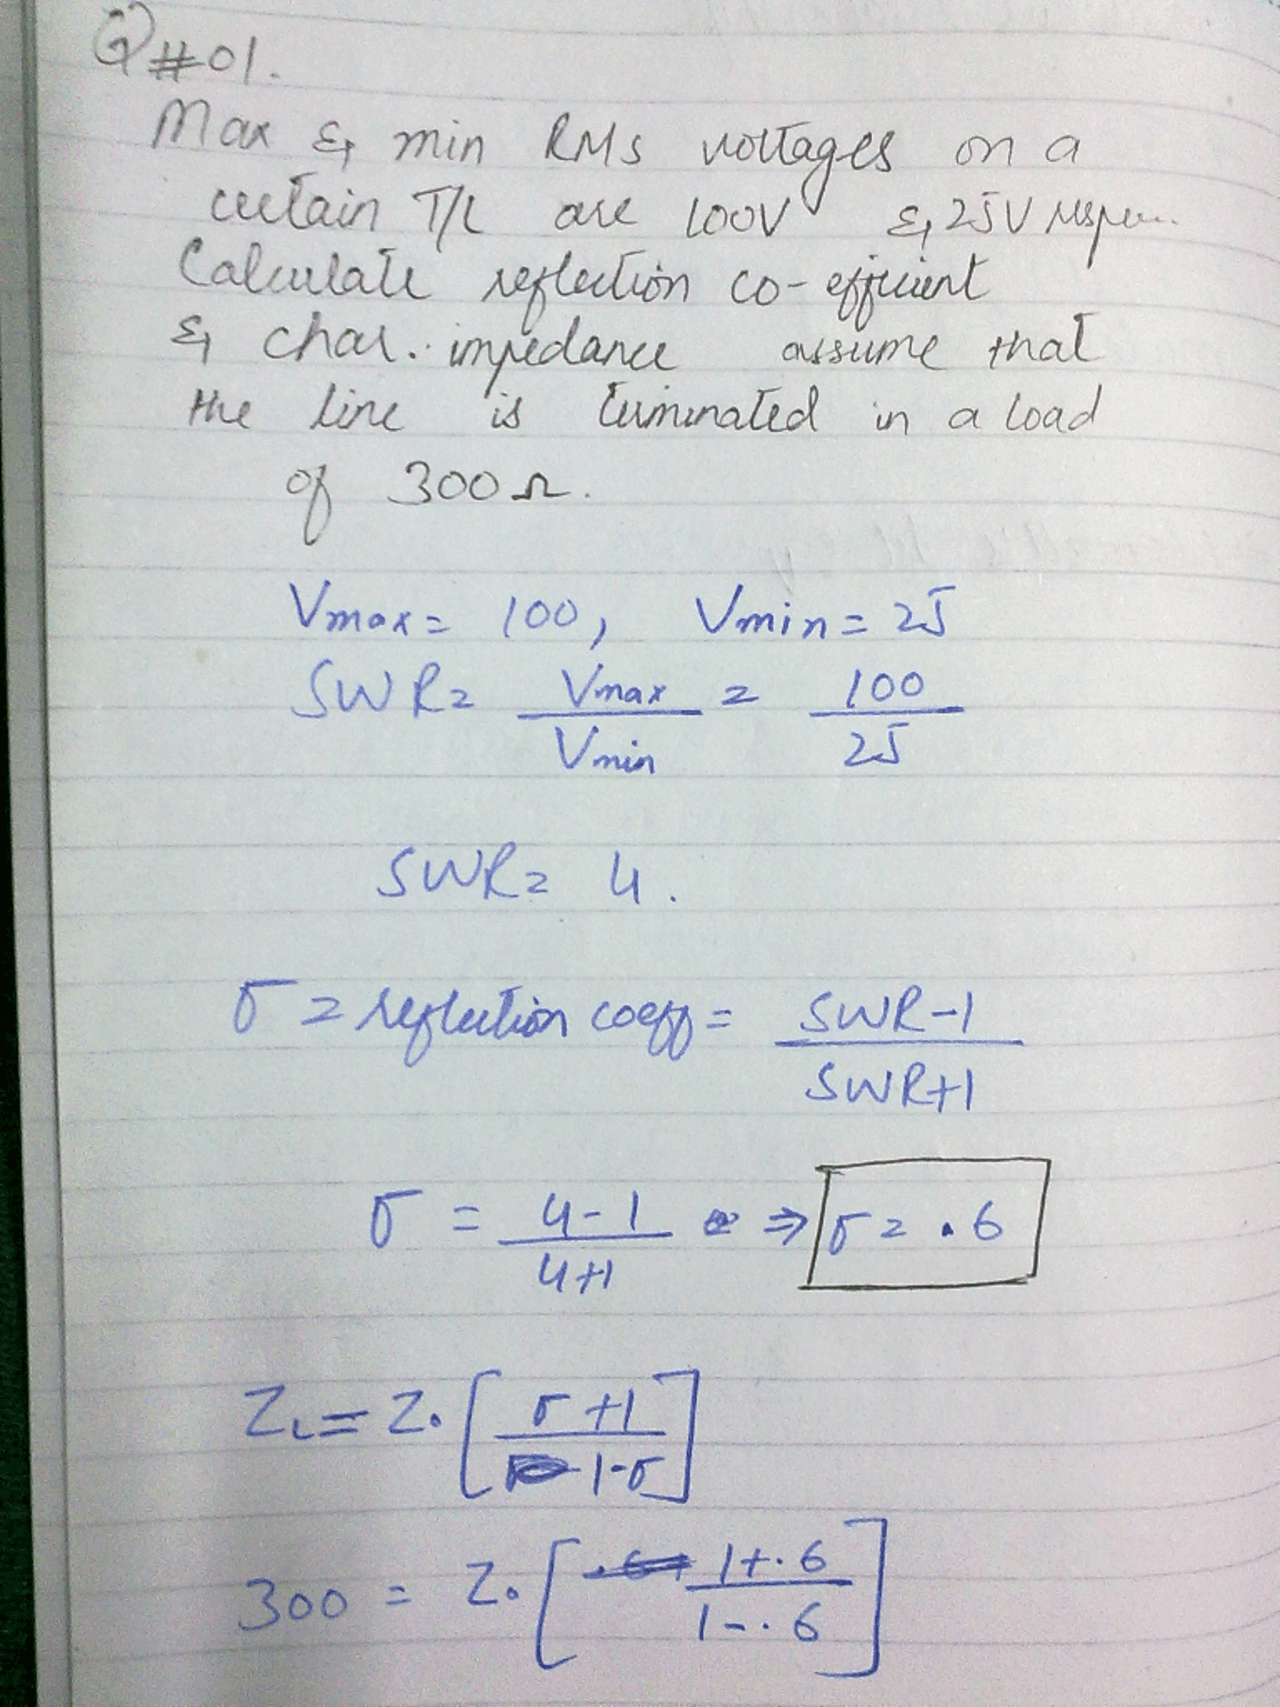 Q#01.
Max & min RMS voltages on a
certain T/L are 100V & 25V respec..
Calculate reflection co-efficient
& char. impedance assume that
the line is terminated in a load
of 300Ω.
Vmax = 100, Vmin = 25
SWR = Vmax / Vmin = 100 / 25
SWR = 4.
σ = reflection coeff = SWR-1 / SWR+1
σ = 4-1 / 4+1 ⇒ σ = .6
ZL = Z₀ [σ+1 / 1-σ]
300 = Z₀ [1+.6 / 1-.6]